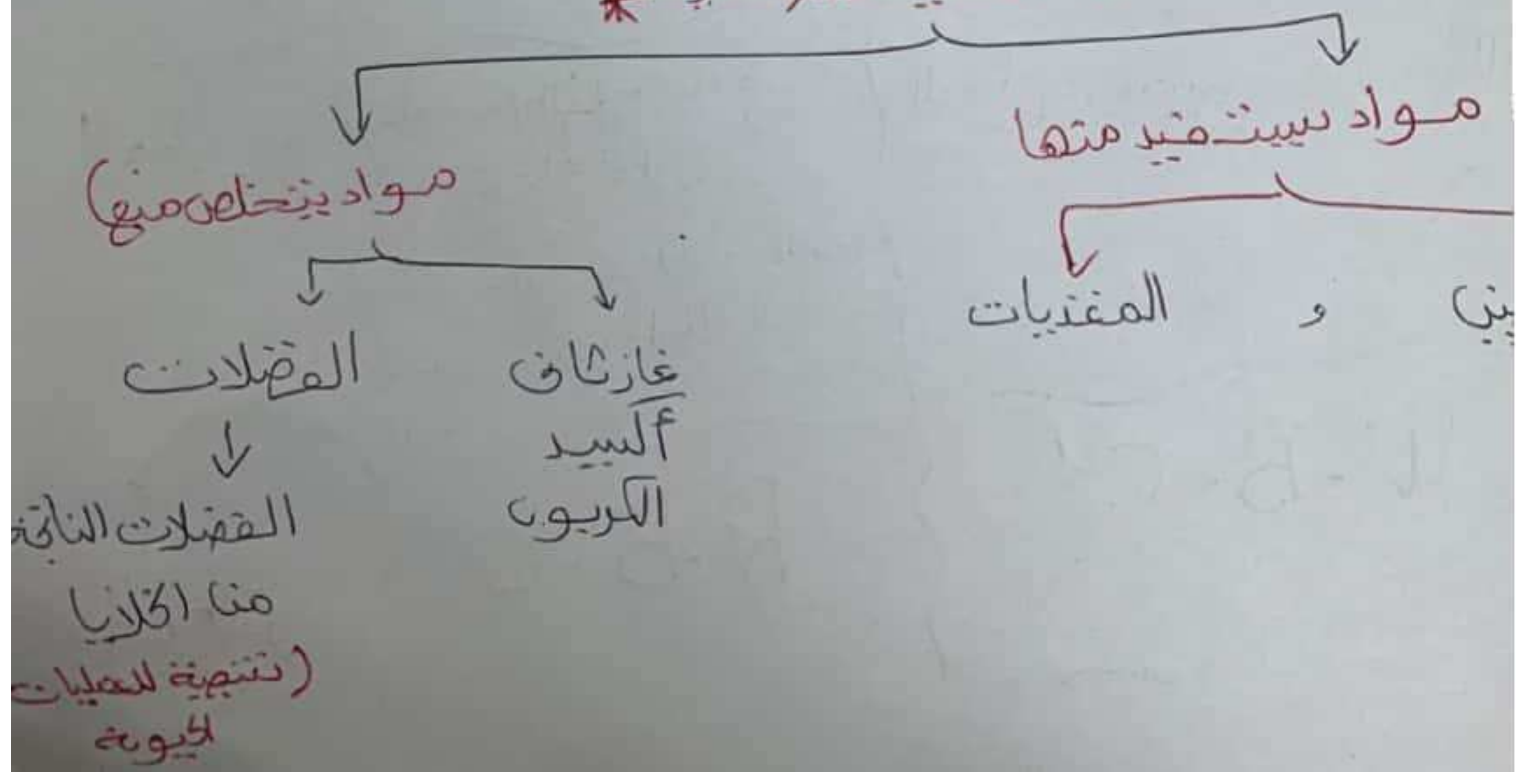 مواد يستفيد منها
مواد يتخلص منها
و المغذيات
غاز ثاني
أكسيد
الكربون
الفضلات
الفضلات الناتجة
من الخلايا
(نتيجة للعمليات
الحيوية